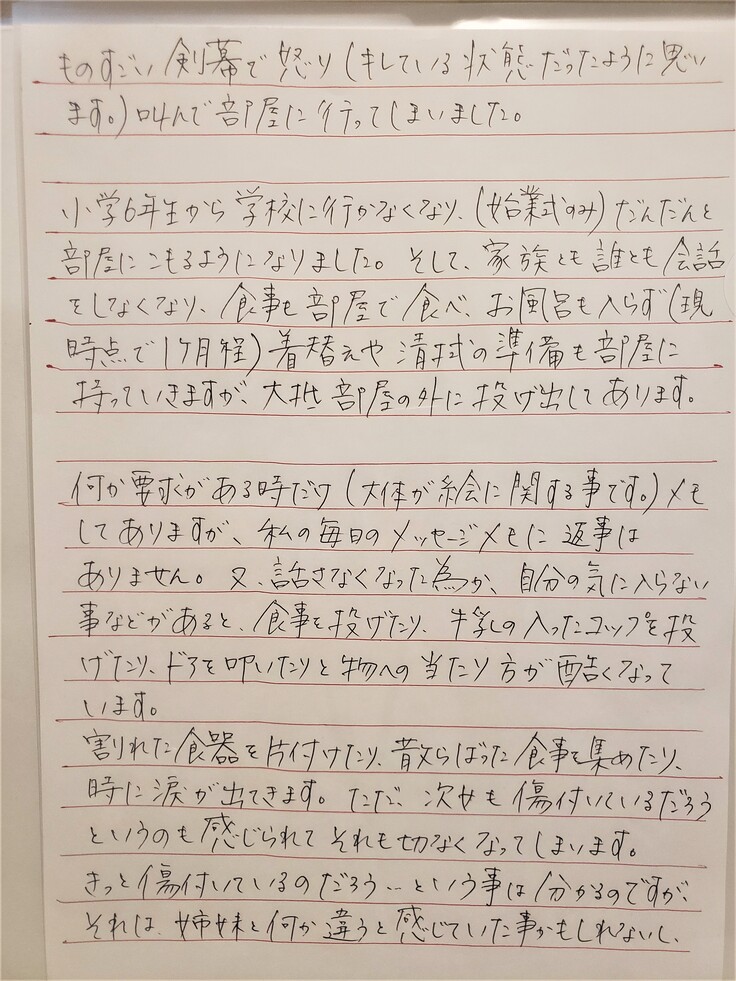 ものすごい剣幕で怒り(キレている状態だったように思い
ます。)叫んで部屋に行ってしまいました。
小学6年生から学校に行かなくなり、(始業式のみ)だんだんと
部屋にこもるようになりました。そして、家族とも誰とも会話
をしなくなり、食事も部屋で食べ、お風呂も入らず(現
時点で1ヶ月程)着替えや清拭の準備も部屋に
持っていきますが、大抵部屋の外に投げ出してあります。
何か要求がある時だけ(大体が絵に関する事です。)メモ
してありますが、私の毎日のメッセージメモに返事は
ありません。又、話さなくなった為か、自分の気に入らない
事などがあると、食事を投げたり、牛乳の入ったコップを投
げたり、ドアを叩いたりと物への当たり方が酷くなって
います。
割れた食器を片付けたり、散らばった食事を集めたり、
時に涙が出てきます。ただ、次女も傷付いているだろう
というのも感じられてそれも切なくなってしまいます。
きっと傷付いているのだろう…という事は分かるのですが、
それは、姉妹と何か違うと感じていた事かもしれないし、